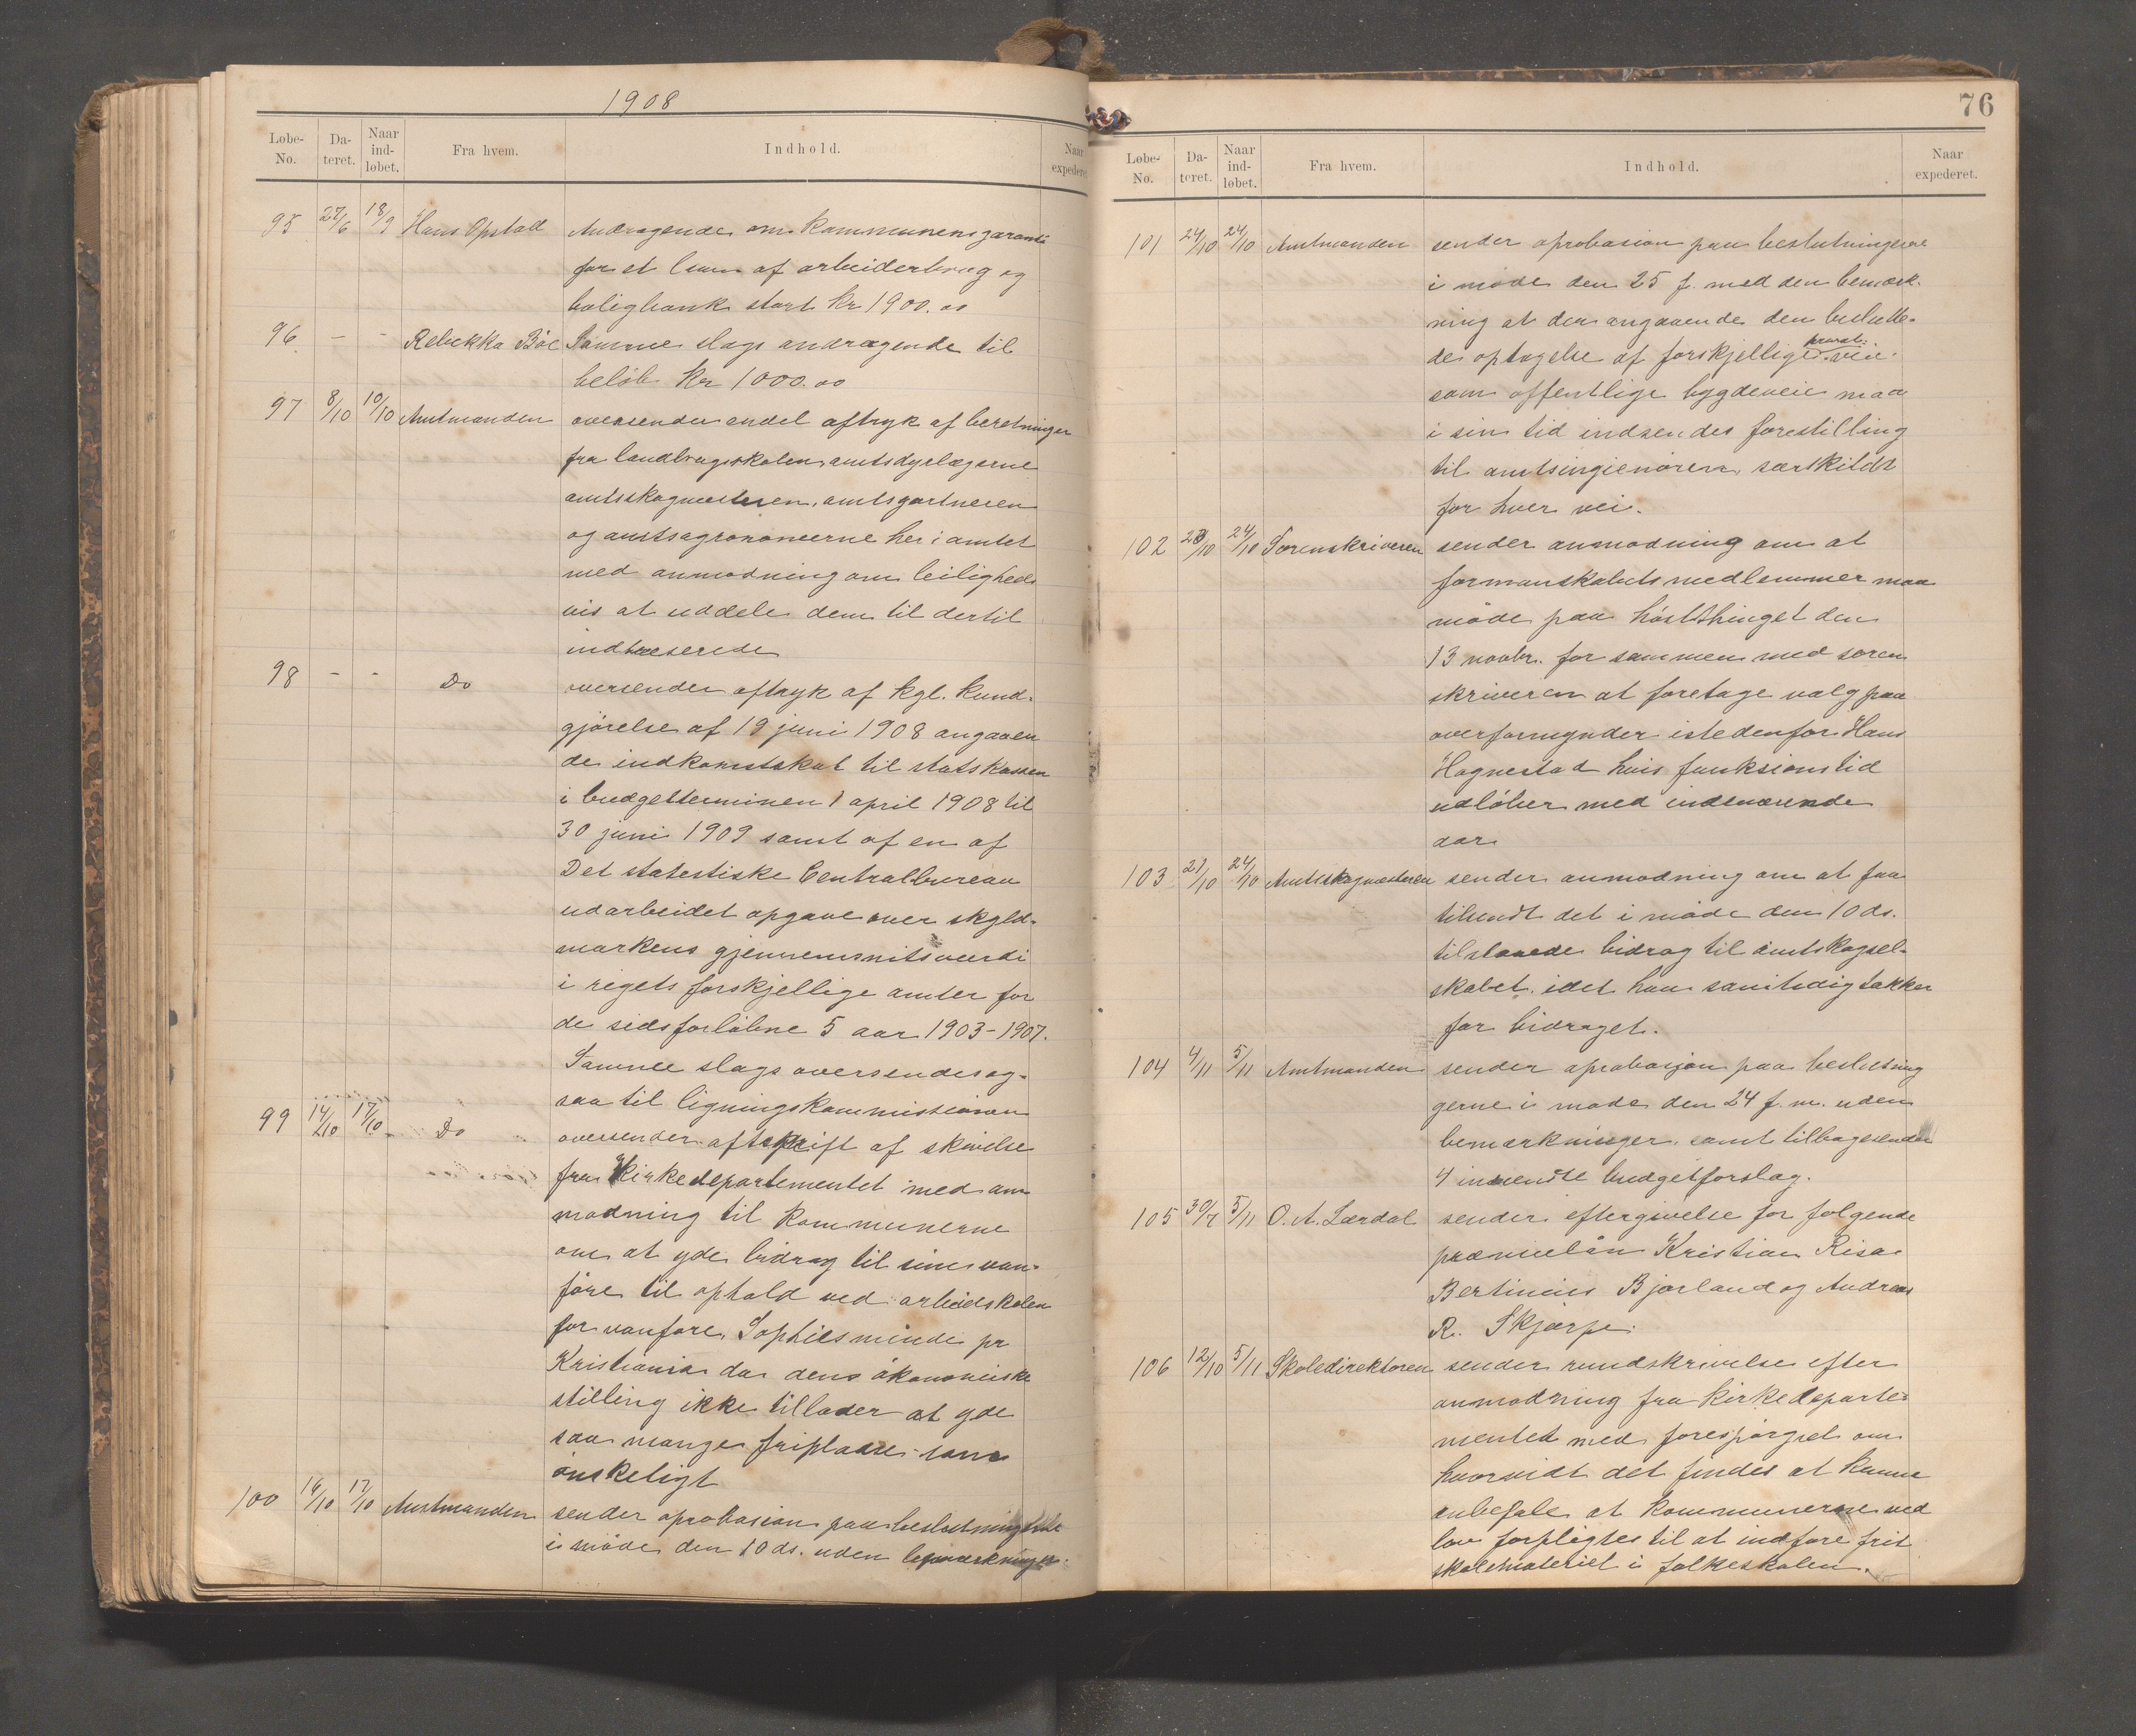 1908
Løbe-No. Da-teret. Naar ind-løbet. Fra hvem. Indhold. Naar expederet.
95 27/6 18/9 Hans Opstad Andragende om kommunens garanti
for et laan af arbeiderbrug og
boligbank stort kr 1900.00
96 - - Rebekka Böe Samme slags andragende til
beløb kr 1000.00
97 8/10 10/10 Amtmanden oversender endel aftryk af beretninger
fra landbrugsskolen, amtsdyrlægerne
amtsskogmesteren, amtsgartneren
og amtsagronomerne her i amtet
med anmodning om leiligheds
vis at uddele dem til dertil
indtreserede
98 - - Do oversender aftryk af kgl. kund-
gjørelse af 19 juni 1908 angaaen
de indkomstskat til statskassen
i budgetterminen 1 april 1908 til
30 juni 1909 samt af en af
Det statestiske Centralbureau
udarbeidet opgave over skyld-
markens gjennemsnitsværdi
i regets forskjellige amter for
de sidsforløbne 5 aar 1903-1907.
Samme slags oversendes og-
saa til ligningskommissionen
99 14/10 17/10 Do oversender afskrift af skrivelse
fra Kirkedepartementet med an
modning til kommunerne
om at yde bidrag til sine van-
före til ophold ved arbeidskolen
for vanföre, Sophiesminde pr
Kristiania da dens økonomiske
stilling ikke tillader at yde
saa mange friplasse som
ønskeligt
100 16/10 17/10 Amtmanden sender aprobasion paa beslutningerne
i möde den 10 ds. uden bemærkninger.
76
Løbe-No. Da-teret. Naar ind-løbet. Fra hvem. Indhold. Naar expederet.
101 24/10 24/10 Amtmanden sender aprobasion paa beslutningerne
i möde den 25 f. med den bemærk-
ning at den angaaende den beslutte-
de optagelse af forskjellige privat. veie
som offentlige bygdeveie maa
i sin tid indsendes forestilling
til amtsingieniøren særskildt
for hver vei.
102 23/10 24/10 Sorenskriveren sender anmodning om at
formanskabets medlemmer maa
møde paa høstthinget den
13 novbr. for sammen med soren
skriveren at foretage valg paa
overformynder istedenfor Hans
Hognestad hvis funksionstid
udløber med indeværende
aar
103 21/10 24/10 Amtsskogmesteren sender anmodning om at faa
tilsendt det i møde den 10 ds.
tilstaaede bidrag til amtskogsel-
skabet, idet han samtidig takker
for bidraget.
104 4/11 5/11 Amtmanden sender aprobasjon paa beslutning
gerne i møde den 24 f. m. uden
bemærkninger, samt tilbagesender
4 insendte budgetforslag.
105 30/7 5/11 O. A. Lærdal sender eftergivelse for følgende
præmielån Kristian Risa
Bertinius Bjorland og Andreas
R. Skjærpe.
106 12/10 5/11 Skoledirektøren sender rundskrivelse efter
anmodning fra Kirkedeparte-
mentet med forespørgsel om
hvorvidt det findes at kunne
anbefale at kommunerne ved
lov forpligtes til at indføre frit
skolemateriel i folkeskolen.